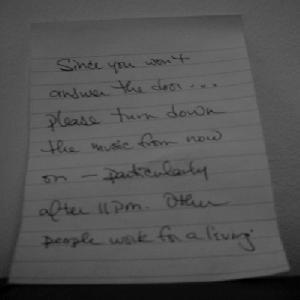 Since you won't
answer the door...
please turn down
the music from now
on — particularly
after 11 pm. Other
people work for a living.